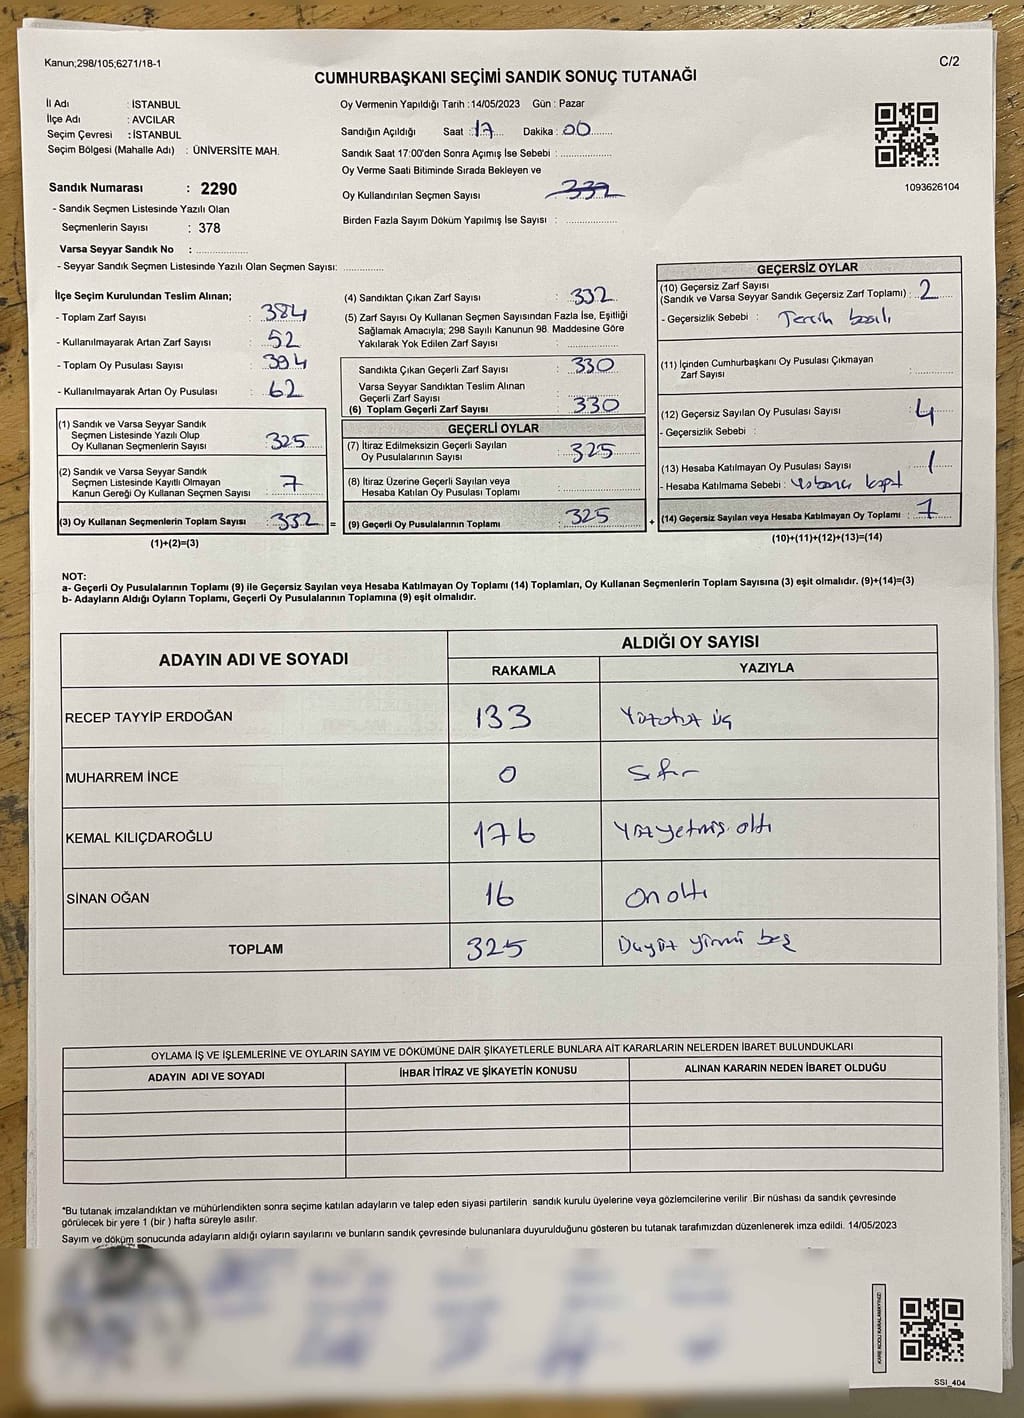 Kanun;298/105;6271/18-1
C/2
CUMHURBAŞKANI SEÇİMİ SANDIK SONUÇ TUTANAĞI
İl Adı : İSTANBUL
İlçe Adı : AVCILAR
Seçim Çevresi : İSTANBUL
Seçim Bölgesi (Mahalle Adı) : ÜNİVERSİTE MAH.
Sandık Numarası : 2290
- Sandık Seçmen Listesinde Yazılı Olan
Seçmenlerin Sayısı : 378
Varsa Seyyar Sandık No : ..............
- Seyyar Sandık Seçmen Listesinde Yazılı Olan Seçmen Sayısı: ............
Oy Vermenin Yapıldığı Tarih : 14/05/2023 Gün : Pazar
Sandığın Açıldığı Saat : 17 Dakika : 00
Sandık Saat 17:00'den Sonra Açımış İse Sebebi : ..............
Oy Verme Saati Bitiminde Sırada Bekleyen ve
Oy Kullandırılan Seçmen Sayısı 332
Birden Fazla Sayım Döküm Yapılmış İse Sayısı : ..............
1093626104
İlçe Seçim Kurulundan Teslim Alınan;
- Toplam Zarf Sayısı : 384
- Kullanılmayarak Artan Zarf Sayısı : 52
- Toplam Oy Pusulası Sayısı : 394
- Kullanılmayarak Artan Oy Pusulası : 62
(1) Sandık ve Varsa Seyyar Sandık
Seçmen Listesinde Yazılı Olup
Oy Kullanan Seçmenlerin Sayısı : 325
(2) Sandık ve Varsa Seyyar Sandık
Seçmen Listesinde Kayıtlı Olmayan
Kanun Gereği Oy Kullanan Seçmen Sayısı : 7
(3) Oy Kullanan Seçmenlerin Toplam Sayısı : 332 =
(1)+(2)=(3)
(4) Sandıktan Çıkan Zarf Sayısı : 332
(5) Zarf Sayısı Oy Kullanan Seçmen Sayısından Fazla İse, Eşitliği
Sağlamak Amacıyla; 298 Sayılı Kanunun 98. Maddesine Göre
Yakılarak Yok Edilen Zarf Sayısı : ..............
Sandıkta Çıkan Geçerli Zarf Sayısı : 330
Varsa Seyyar Sandıktan Teslim Alınan
Geçerli Zarf Sayısı :
(6) Toplam Geçerli Zarf Sayısı : 330
GEÇERLİ OYLAR
(7) İtiraz Edilmeksizin Geçerli Sayılan
Oy Pusulalarının Sayısı : 325
(8) İtiraz Üzerine Geçerli Sayılan veya
Hesaba Katılan Oy Pusulası Toplamı : ..............
(9) Geçerli Oy Pusulalarının Toplamı : 325 +
GEÇERSİZ OYLAR
(10) Geçersiz Zarf Sayısı
(Sandık ve Varsa Seyyar Sandık Geçersiz Zarf Toplamı) : 2
- Geçersizlik Sebebi : Tercih basılı
(11) İçinden Cumhurbaşkanı Oy Pusulası Çıkmayan
Zarf Sayısı : ..............
(12) Geçersiz Sayılan Oy Pusulası Sayısı : 4
- Geçersizlik Sebebi :
(13) Hesaba Katılmayan Oy Pusulası Sayısı : 1
- Hesaba Katılmama Sebebi :
(14) Geçersiz Sayılan veya Hesaba Katılmayan Oy Toplamı : 7
(10)+(11)+(12)+(13)=(14)
NOT:
a- Geçerli Oy Pusulalarının Toplamı (9) ile Geçersiz Sayılan veya Hesaba Katılmayan Oy Toplamı (14) Toplamları, Oy Kullanan Seçmenlerin Toplam Sayısına (3) eşit olmalıdır. (9)+(14)=(3)
b- Adayların Aldığı Oyların Toplamı, Geçerli Oy Pusulalarının Toplamına (9) eşit olmalıdır.
ADAYIN ADI VE SOYADI
ALDIĞI OY SAYISI
RAKAMLA YAZIYLA
RECEP TAYYİP ERDOĞAN 133 Yüzotuz üç
MUHARREM İNCE 0 Sıfır
KEMAL KILIÇDAROĞLU 176 Yüzyetmiş altı
SİNAN OĞAN 16 On altı
TOPLAM 325 Üçyüz yirmi beş
OYLAMA İŞ VE İŞLEMLERİNE VE OYLARIN SAYIM VE DÖKÜMÜNE DAİR ŞİKAYETLERLE BUNLARA AİT KARARLARIN NELERDEN İBARET BULUNDUKLARI
ADAYIN ADI VE SOYADI
İHBAR İTİRAZ VE ŞİKAYETİN KONUSU
ALINAN KARARIN NEDEN İBARET OLDUĞU
*Bu tutanak imzalandıktan ve mühürlendikten sonra seçime katılan adayların ve talep eden siyasi partilerin sandık kurulu üyelerine veya gözlemcilerine verilir .Bir nüshası da sandık çevresinde
görülecek bir yere 1 (bir ) hafta süreyle asılır.
Sayım ve döküm sonucunda adayların aldığı oyların sayılarını ve bunların sandık çevresinde bulunanlara duyurulduğunu gösteren bu tutanak tarafımızdan düzenlenerek imza edildi. 14/05/2023
KARE KODU KARALAMAYINIZ!
SSI_404